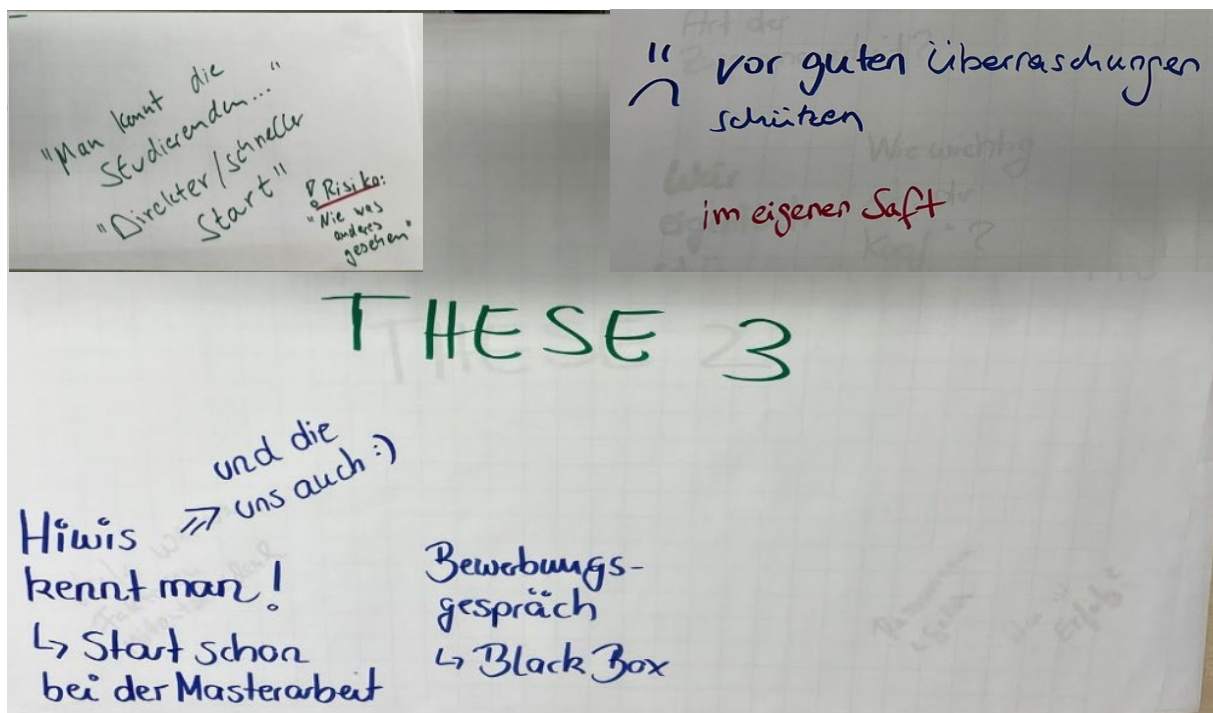 "Man kennt die
Studierenden..."
"Direkter/schneller
Start"
! Risiko:
"Nie was
anderes
gesehen"
vor guten Überraschungen
schützen
im eigenen Saft
THESE 3
und die
uns auch :)
Hiwis
kennt man!
↳ Start schon
bei der Masterarbeit
Bewerbungs-
gespräch
↳ Black Box